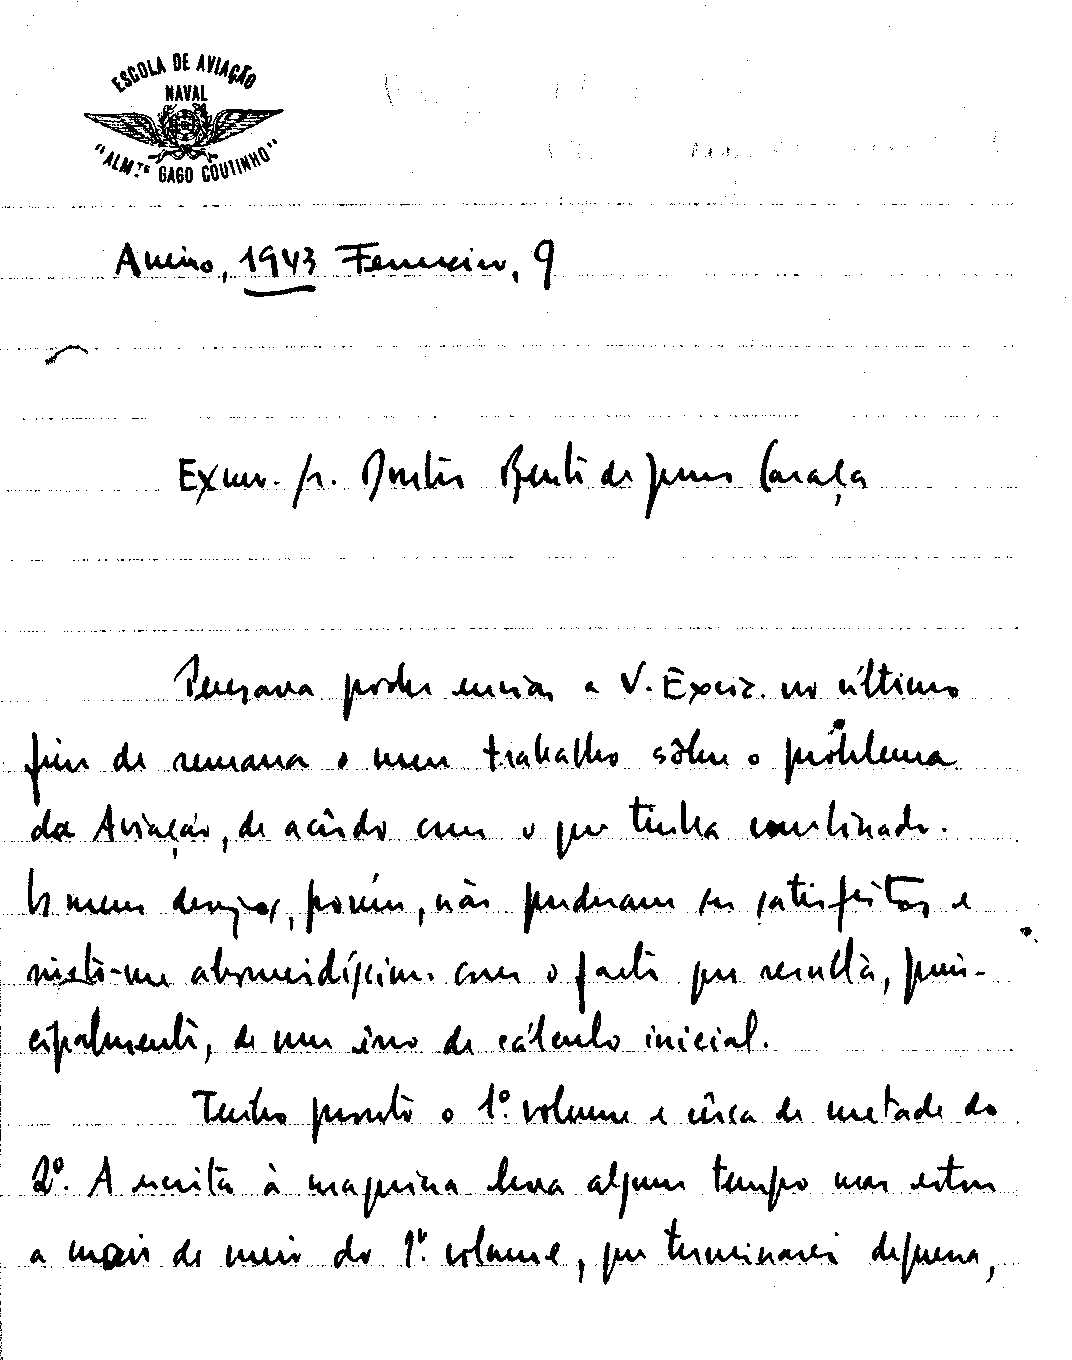 ESCOLA DE AVIAÇÃO
NAVAL
"ALM.TE GAGO COUTINHO"
Aveiro, 1943 Fevereiro, 9
Exmo. Sr. Doutor Bento de Jesus Caraça
Pensava poder enviar a V. Excia. no último
fim de semana o meu trabalho sôbre o problema
da Aviação, de acôrdo com o que tinha combinado.
Os meus desejos, porém, não puderam ser satisfeitos e
sinto-me aborrecidíssimo com o facto que resulta, prin-
cipalmente, de um êrro de cálculo inicial.
Tenho pronto o 1º. volume e cêrca de metade do
2º. A escrita à maquina leva algum tempo mas estou
a mais de meio do 1º. volume, que terminarei depressa,